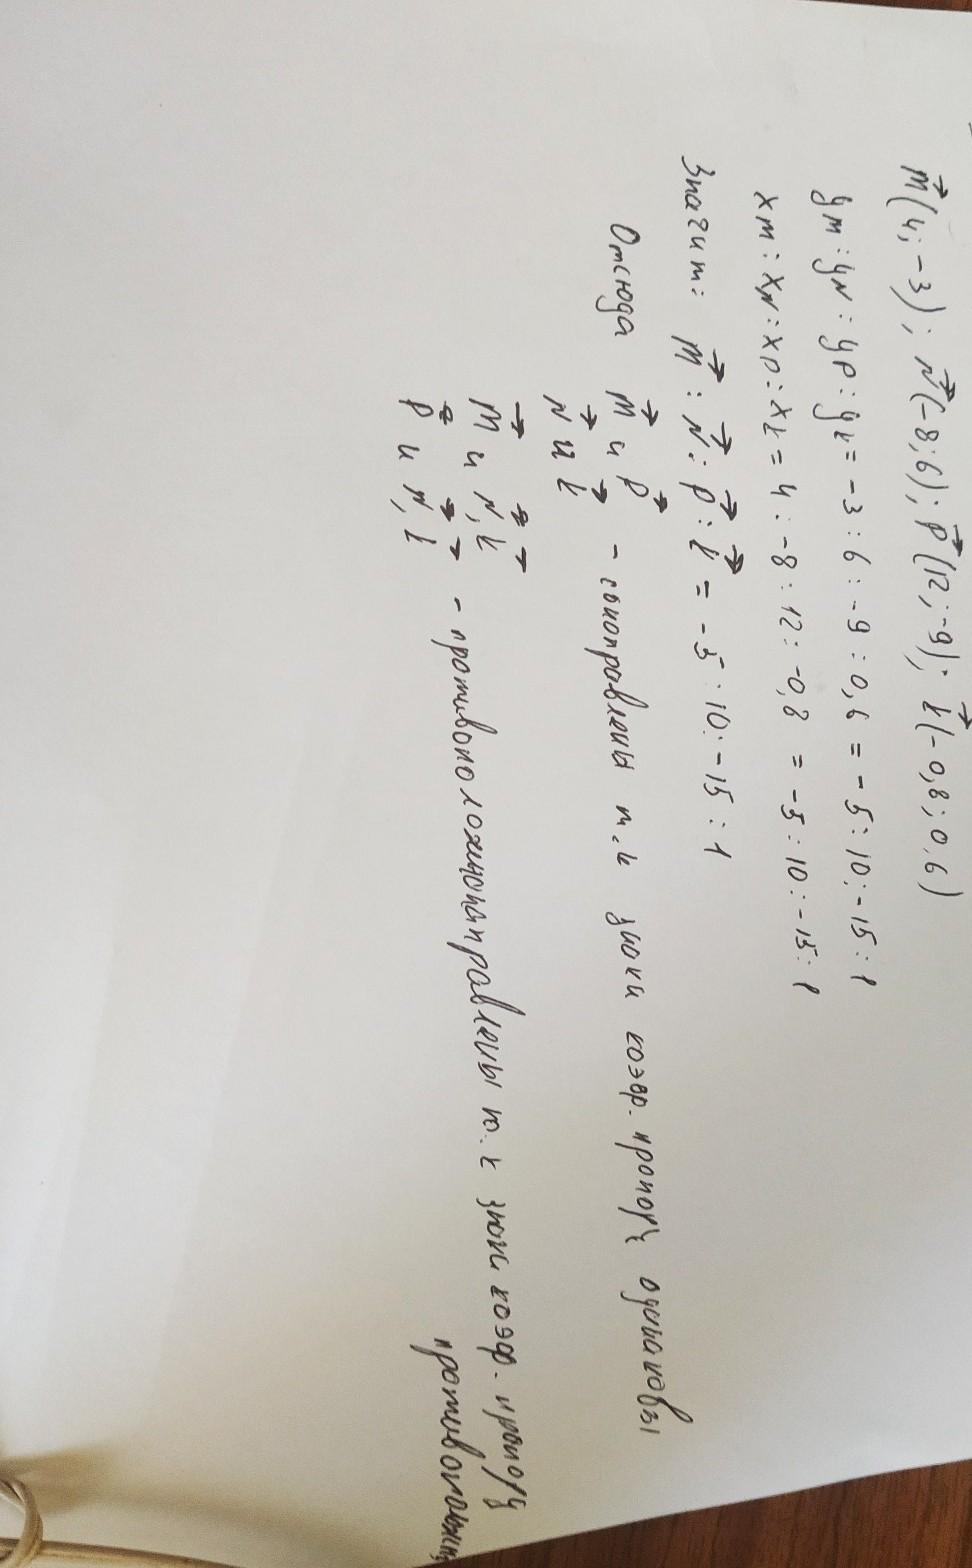 m⃗(4; -3); N⃗(-8; 6); p⃗(12; -9); k⃗(-0,8; 0,6)
ym : yN : yp : yk = -3 : 6 : -9 : 0,6 = -5 : 10 : -15 : 1
xm : xN : xp : xk = 4 : -8 : 12 : -0,8 = -5 : 10 : -15 : 1
Значит: m⃗ : N⃗ : p⃗ : k⃗ = -5 : 10 : -15 : 1
Отсюда m⃗ и p⃗
N⃗ и k⃗ - сонаправлены т.к знаки коэф. пропорц одинаковы
m⃗ и N⃗, k⃗
p⃗ и N⃗, k⃗ - противоположнонаправлены т.к знаки коэф. пропорц